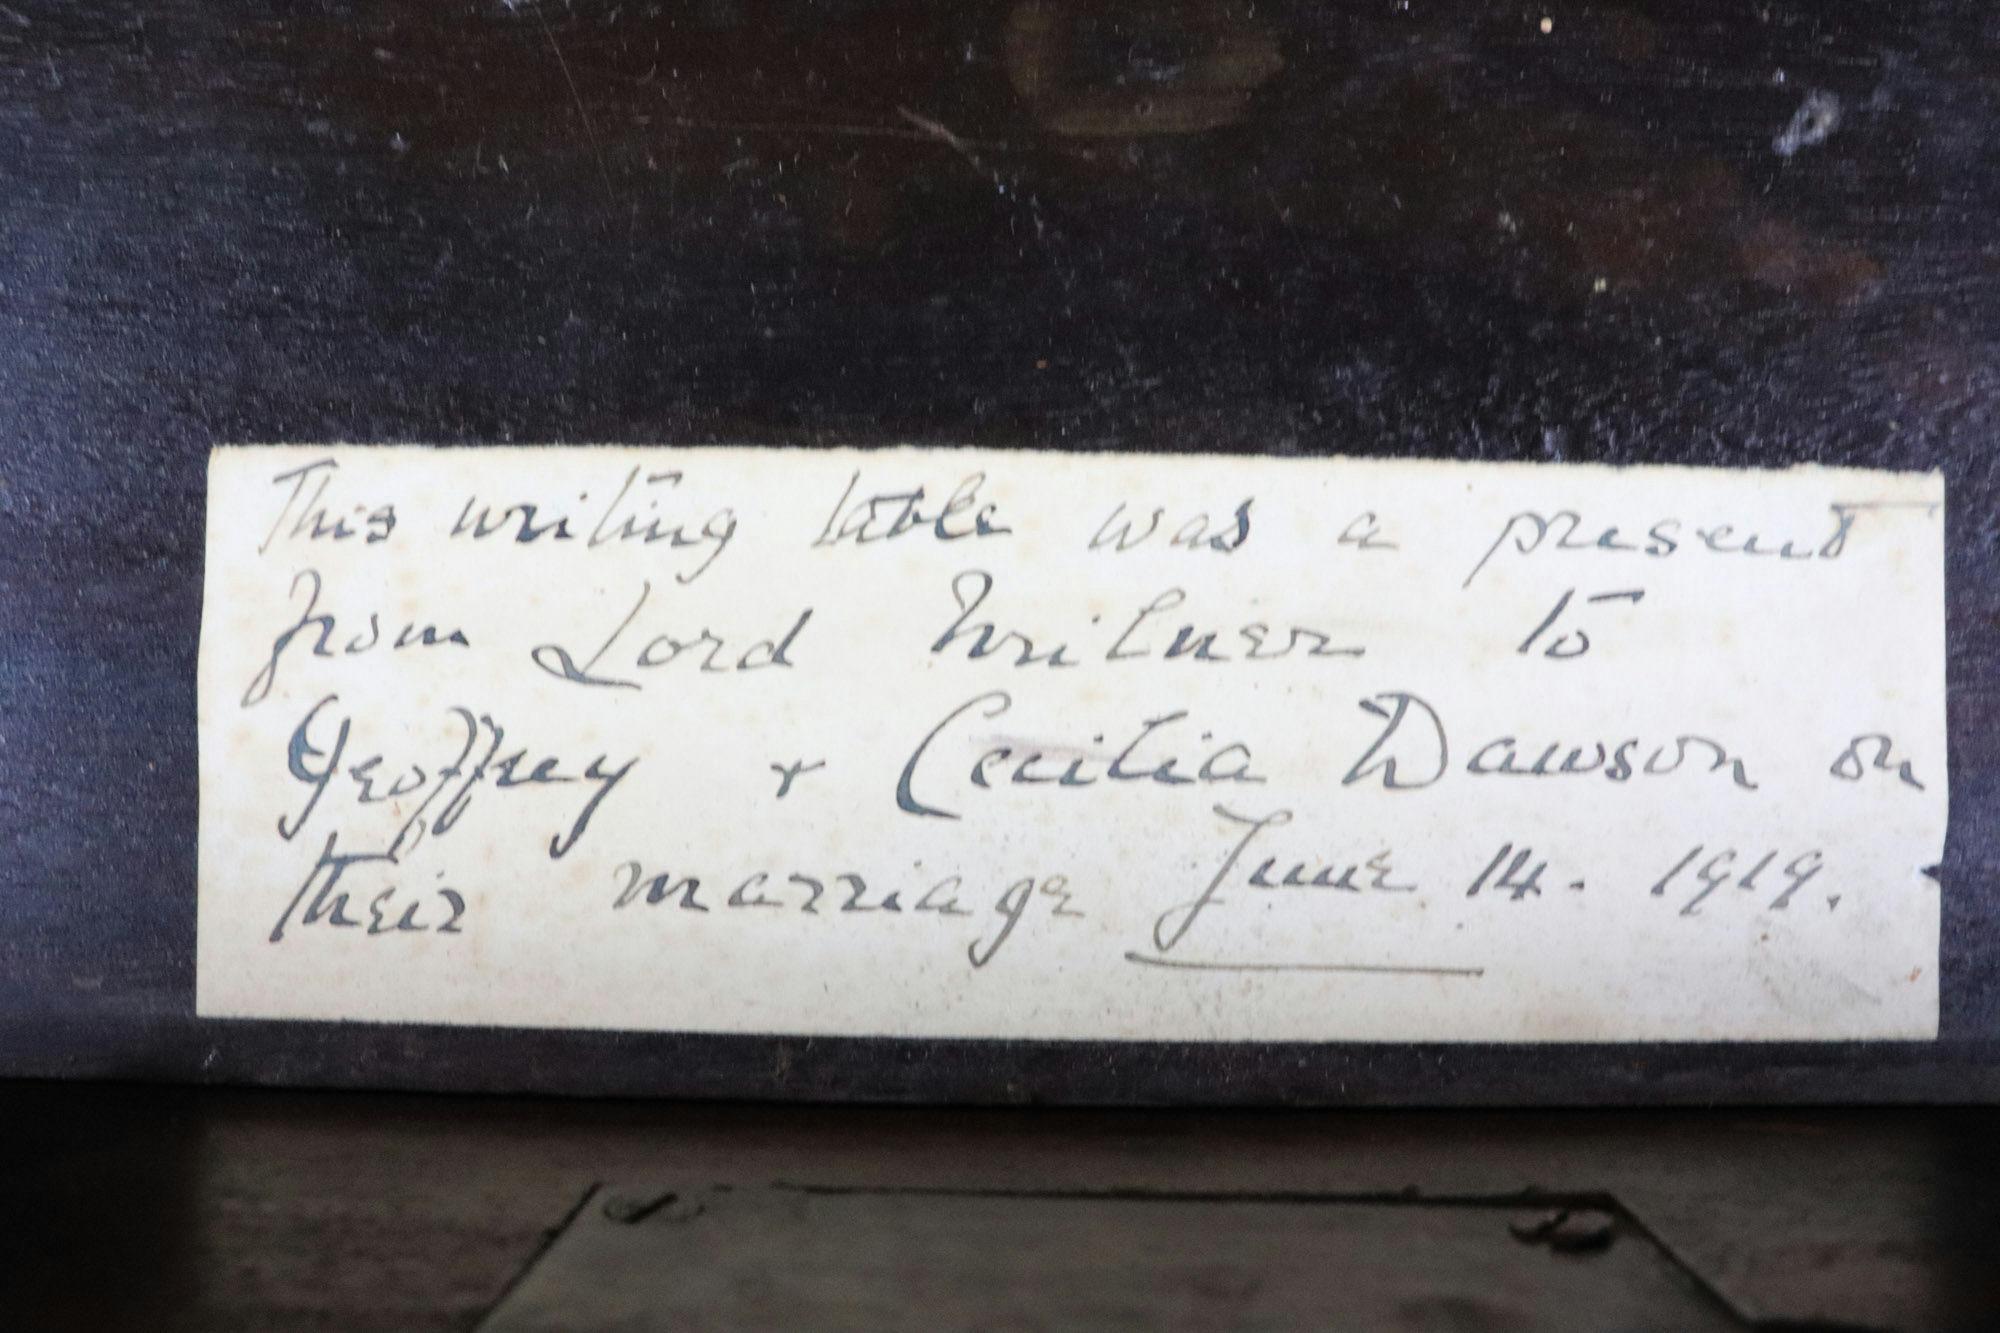 This writing table was a present
from Lord Milner to
Geoffrey & Cecilia Dawson on
their marriage June 14. 1919.